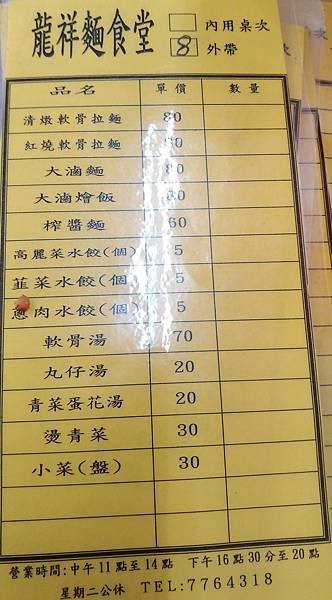 龍祥麵食堂 內用桌次
8 外帶
品名 單價 數量
清燉軟骨拉麵 80
紅燒軟骨拉麵
大滷麵 80
大滷燴飯
榨醬麵 60
高麗菜水餃(個) 5
韭菜水餃(個) 5
蔥肉水餃(個) 5
軟骨湯 70
丸仔湯 20
青菜蛋花湯 20
燙青菜 30
小菜(盤) 30
營業時間:中午11點至14點 下午16點30分至20點
星期二公休 TEL:7764318